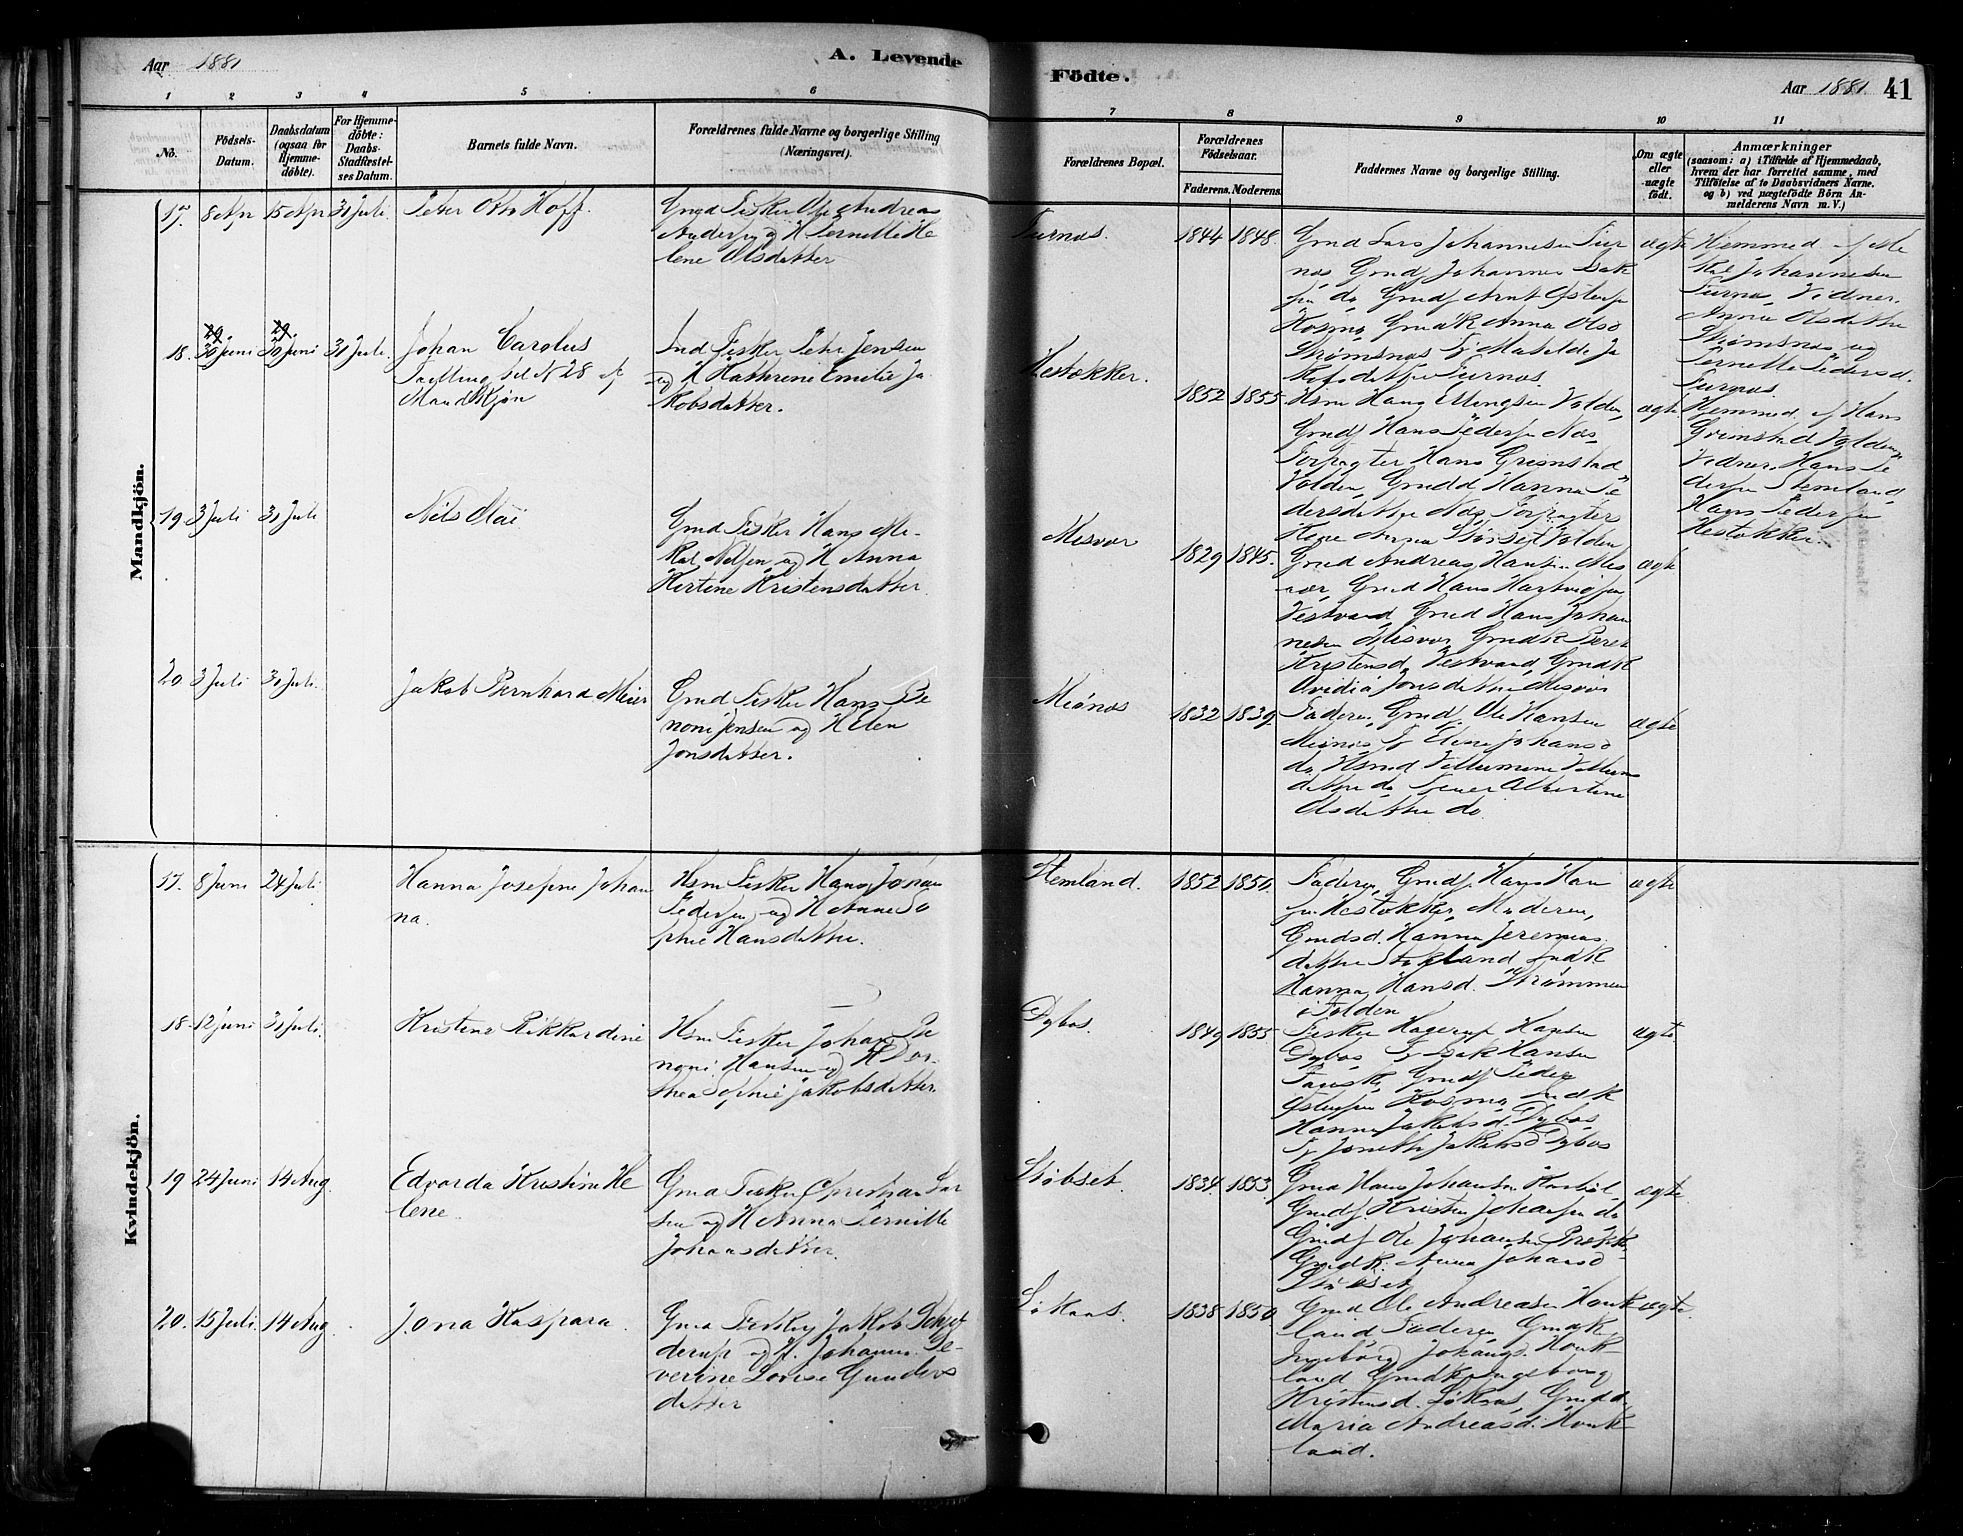 Aar 1881
A. Levende
Födte.
Aar 1881.
41
1
2
3
4
5
6
7
8
9
10
11
No.
Födsels-
Datum.
Daabsdatum
(ogsaa for
Hjemme-
döbte).
For Hjemme-
döbte:
Daabs-
Stadfæstel-
ses Datum.
Barnets fulde Navn.
Forældrenes fulde Navne og borgerlige Stilling
(Næringsvei).
Forældrenes Bopæl.
Forældrenes
Födselsaar.
Faderens. Moderens.
Faddernes Navne og borgerlige Stilling.
Om ægte
eller
uægte
födt.
Anmærkninger
(saasom: a) i Tilfælde af Hjemmedaab,
hvem der har forrettet samme, med
Tilföielse af to Daabsvidners Navne,
og b) ved uægtefödte Börn An-
melderens Navn m. V.)
Mandkjön.
17. 8 Apr 15 Apr 31 Juli
Peter Otto Hoff.
Gmd Fisker Ole Andreas
Anders og H Pernille He
lene Olsdatter
1844 1848.
Gmd Lars Johannesen
Gmdf Johannes
Strømsnæs
ægte
Hjemmed. af
Johannesen
Vidner.
Anna Olsdatter
Strømsnæs og
Pernille Pedersd.
18. 30 Juni 30 Juni 31 Juli
Johan Carolus
Tvilling til N 28 af
Mandkjøn
Ind Fisker Peter Jensen
og H Kathrine Emilie Ja
kobsdatter.
Hestøkker.
1852 1855.
Hsm Hans Ellingsen Valden,
Gmdf Hans Pedersen Næs,
Forpagter Hans Grimstad
Valden, Gmdd Hanna Pe
dersdatter Næs, Forpagters
Kone
ægte
Hjemmed. af Hans
Grimstad Valden,
Vidner. Hans Pe
dersen Stemland
Hans Pedersen
Hestøkker.
19. 3 Juli 31 Juli
Nils Olai
Gmd Fisker Hans Mi-
kal Nilsen og H Anna
Kirtine Kristensdatter.
Misvær
1829 1845.
Gmd Andreas Hansen Mis
vær, Gmd Hans Hartvigsen
Vestvand, Gmd Hans Johan
nesen Misvær, Gmdk Beret
Kristensd. Vestvand, Gmdk
Ovidia Jonsdatter Misvær
ægte
20 3 Juli 31 Juli.
Jakob Bernhard Meier
Gmd Fisker Hans Be
noni Jensen og H Elen
Jonsdatter.
Miønæs
1832 1839.
Faderen, Gmdf. Ole Hansen
Miønæs, Pj Elene Johansd
do, Hsmd Villumine Villums
datter do, Albertine
Olsdatter do
ægte
Kvindekjön.
17. 8 Juni 24 Juli
Hanna Josefine Johan
na.
Hsm Fisker Hans Johan
Pedersen, og H Anne So
phie Hansdatter.
Stemland.
1852 1850.
Faderen, Gmdf. Hans Han
sen Hestøkker, Moderen,
Gmdsd. Hanna Jeremias
datter Stokland Indk
Hanna Hansd. Strømmen
i Folden
ægte
18. 12 Juni 31 Juli.
Kristine Rikkardine
Hsm Fisker Johan Be
noni Hansen og H Dor
thea Sophie Jakobsdatter.
Dybos.
1849 1855
Fisker Hagerup Hansen
Dybos, Pj Isak Hansen
Gmdf Peder
Østensen Kosmo, Indk
Hanna Jakobsd. Dybos
Pj Jonette Jakobsd Dybos
ægte
19 24 Juni 14 Aug.
Edvarda Kristine He
lene
Gmd Fisker Christian Lar
sen og H Anna Pernille
Johansdatter.
Støbset.
1834. 1853
Gmd Hans Johansen
Gmdf. Kristen Johansen do
Gmdf Ole Johansen
Gmdk. Anna Johansd
Støbset
ægte
20. 15 Juli. 14 Aug
Jona Kaspara
Gmd Fisker Jakob
og H. Johanna Se-
verine Lovise Gunders
datter
1838 1850
Gmd Ole Andreasen Houk
land, Faderen, Gmdk
Ingeborg Johansd. Houk
land, Gmdk Ingeborg
Kristensd. Gmdd
Maria Andreasd. Houk
land.
ægte